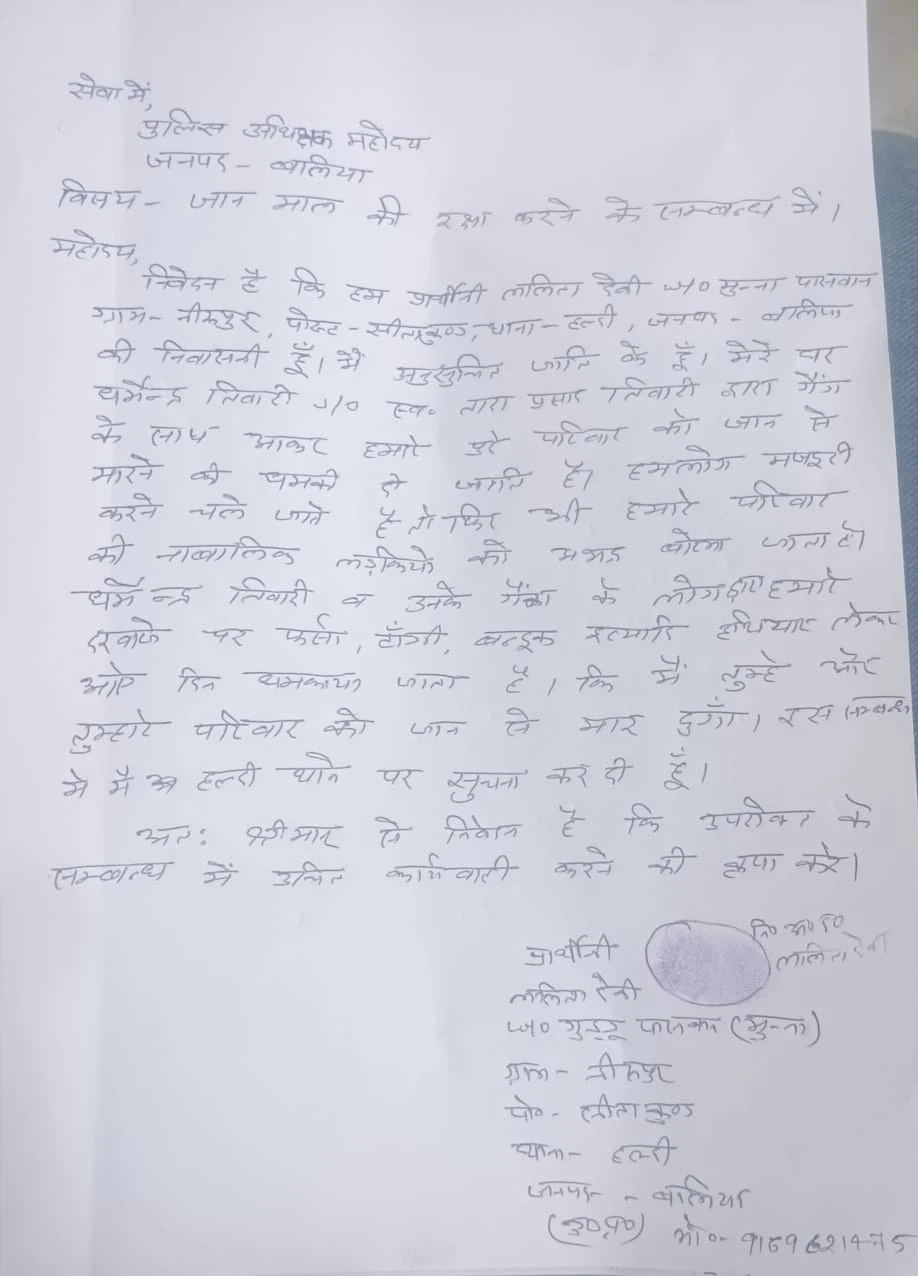 सेवा में,
पुलिस अधिक्षक महोदय
जनपद - बालिया
विषय - जान माल की रक्षा करने के सम्बन्ध में।
महोदय,
निवेदन है कि हम प्रार्थीनी ललिता देवी W/o मुन्ना पासवान
ग्राम - नीरुपुर, पोस्ट - सीताकुण्ड, थाना - हल्दी, जनपद - बालिया
की निवासनी हूँ। मैं अनुसुचित जाति के हूँ। मेरे घर
धर्मेन्द्र तिवारी S/o स्व० तारा प्रसाद तिवारी द्वारा गैंग
के साथ आकर हमारे पुरे परिवार को जान से
मारने की धमकी दी जाति है। हमलोग मजदुरी
करने चले जाते है तो फिर भी हमारे परिवार
की नाबालिक लड़कियो को अभद्र बोला जाता है।
धर्मेन्द्र तिवारी व उनके गैंग के लोग द्वारा हमारे
दरवाजे पर फर्सा, टाँगी, बन्दूक इत्यादि हथियार लेकर
आऐ दिन धमकाया जाता है। कि मैं तुम्हे और
तुम्हारे परिवार को जान से मार दुगाँ। इस सम्बन्ध
मे मै हल्दी थाने पर सुचना कर दी हूँ।
अतः श्रीमान से निवेदन है कि उपरोक्त के
सम्बन्ध में उचित कार्यवाही करने की कृपा करे।
नि० अ० ललिता देवी
प्रार्थीनी
ललिता देवी
W/o गुड्डू पासवान (मुन्ना)
ग्राम - नीरुपुर
पो० - सीताकुण्ड
थाना - हल्दी
जनपद - बालिया
(उ०प्र०) मो० -